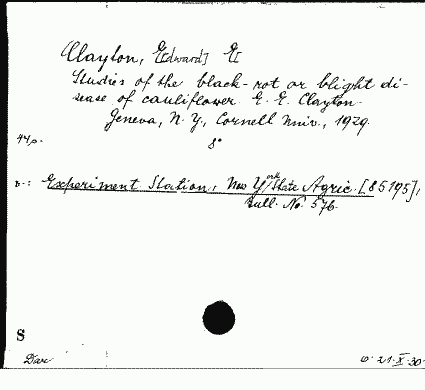 Clayton, E[dward] E[
Studies of the black-rot or blight di-
sease of cauliflower. E. E. Clayton.
Geneva, N. Y., Cornell Univ., 1929.
44 p. 8°
Experiment Station, New York State Agric. [85195],
Bull. No. 576.
S
21.X.30.